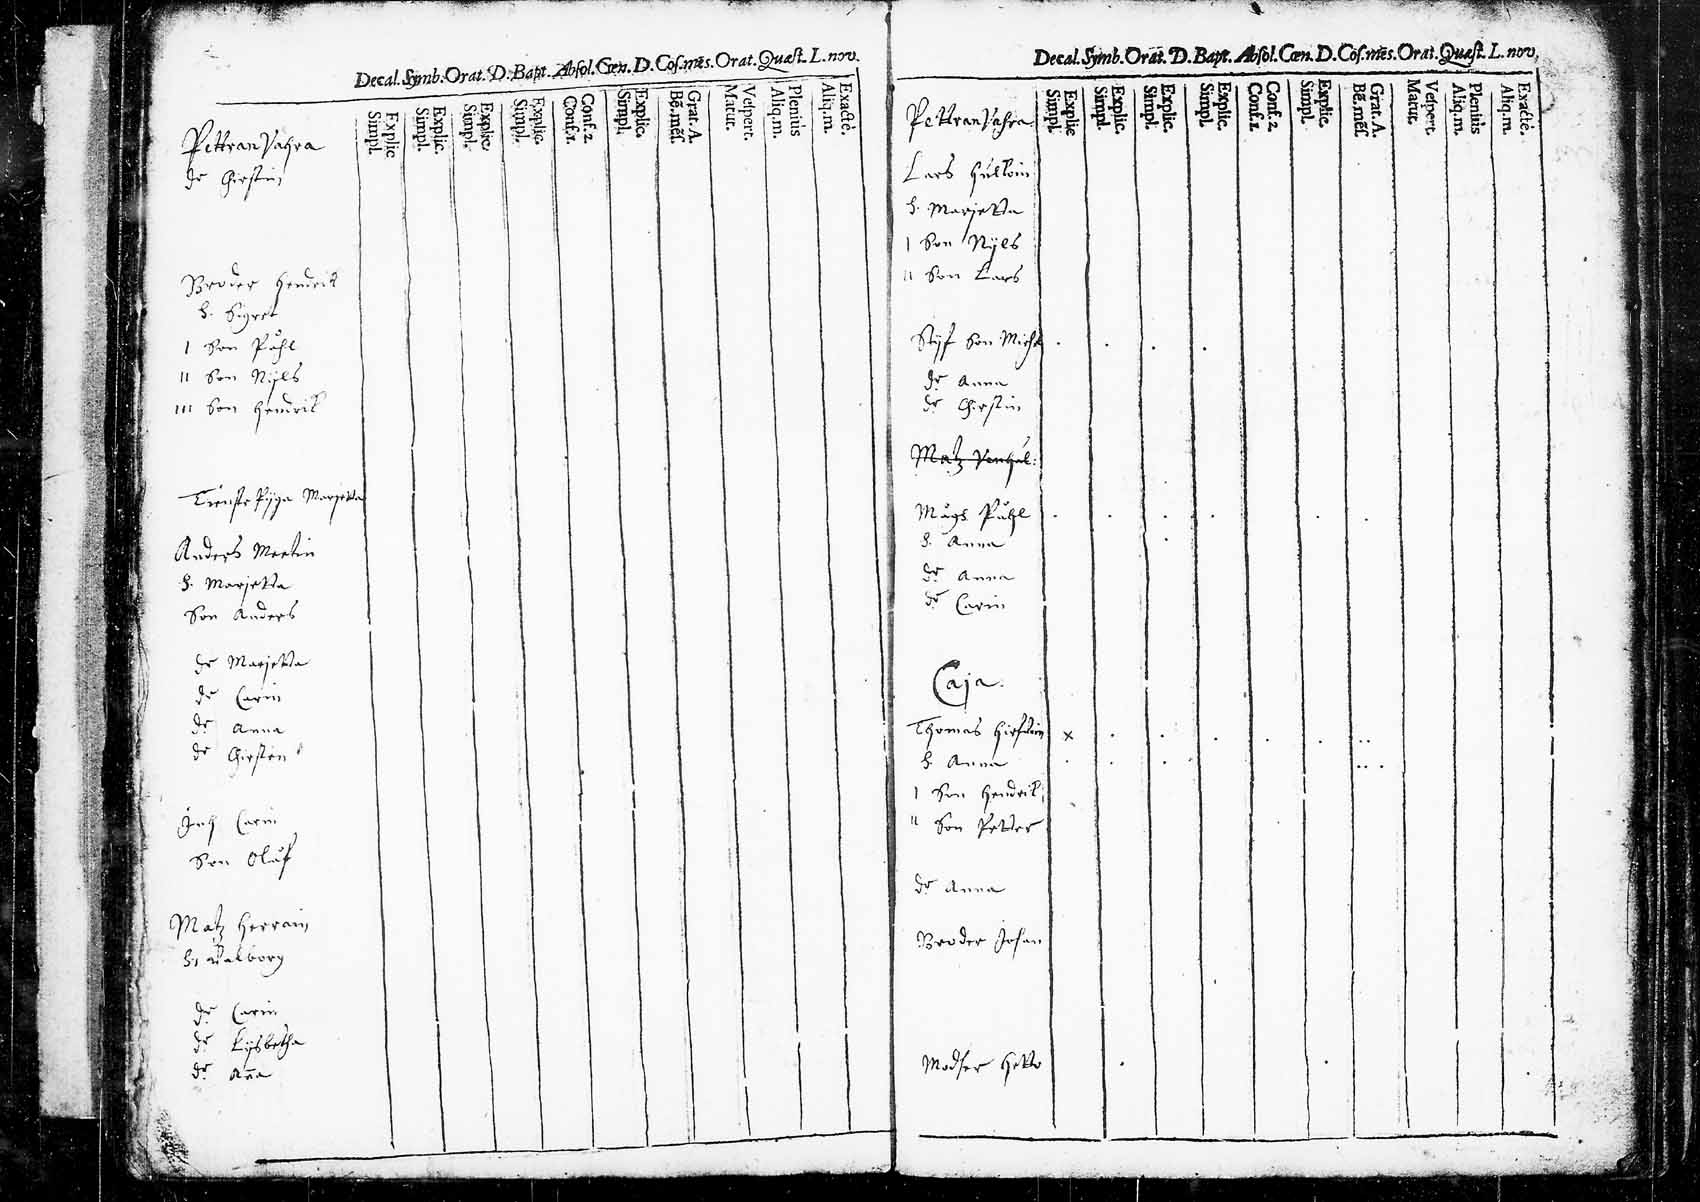 Decal. Symb. Orat. D. Bapt. Absol. Cœn. D. Cos. mēs. Orat. Quæst. L. nov.
Explic Simpl. Explic. Simpl. Explic. Simpl. Explic. Simpl. Conf. 2. Conf. 1. Explic. Simpl. Grat. A. Bē. mēs. Vespert. Matut. Pleniùs Aliq. m. Exactè. Aliq. m.
Pettran Vahra
dr Chirstin
Broder Hendrik
h. Sigret
I Son Påhl
II Son Nijls
III Son Hendrik
Tienste Pijga Marjetta
Anders Martin
h. Marjetta
Son Anders
dr Marjetta
dr Carin
dr Anna
dr Chirstin
Inh Carin
Son Olåf
Matz Herrain
h. Walborg
dr Carin
dr Lijsbetha
dr Aña
Decal. Symb. Orat. D. Bapt. Absol. Cœn. D. Cos. mēs. Orat. Quæst. L. nov.
Explic Simpl. Explic. Simpl. Explic. Simpl. Explic. Simpl. Conf. 2. Conf. 1. Explic. Simpl. Grat. A. Bē. mēs. Vespert. Matut. Pleniùs Aliq. m. Exactè. Aliq. m.
Pettran Vahra
Lars
h. Marjetta
I Son Nijls
II Son Lars
Stijf Son Mich
dr Anna
dr Chirstin
Matz
Mågs Påhl
h. Anna
dr Anna
dr Carin
Caja.
Thomas x
h. Anna
I Son Hendrik
II Son Petter
dr Anna
Broder Johan
Modher